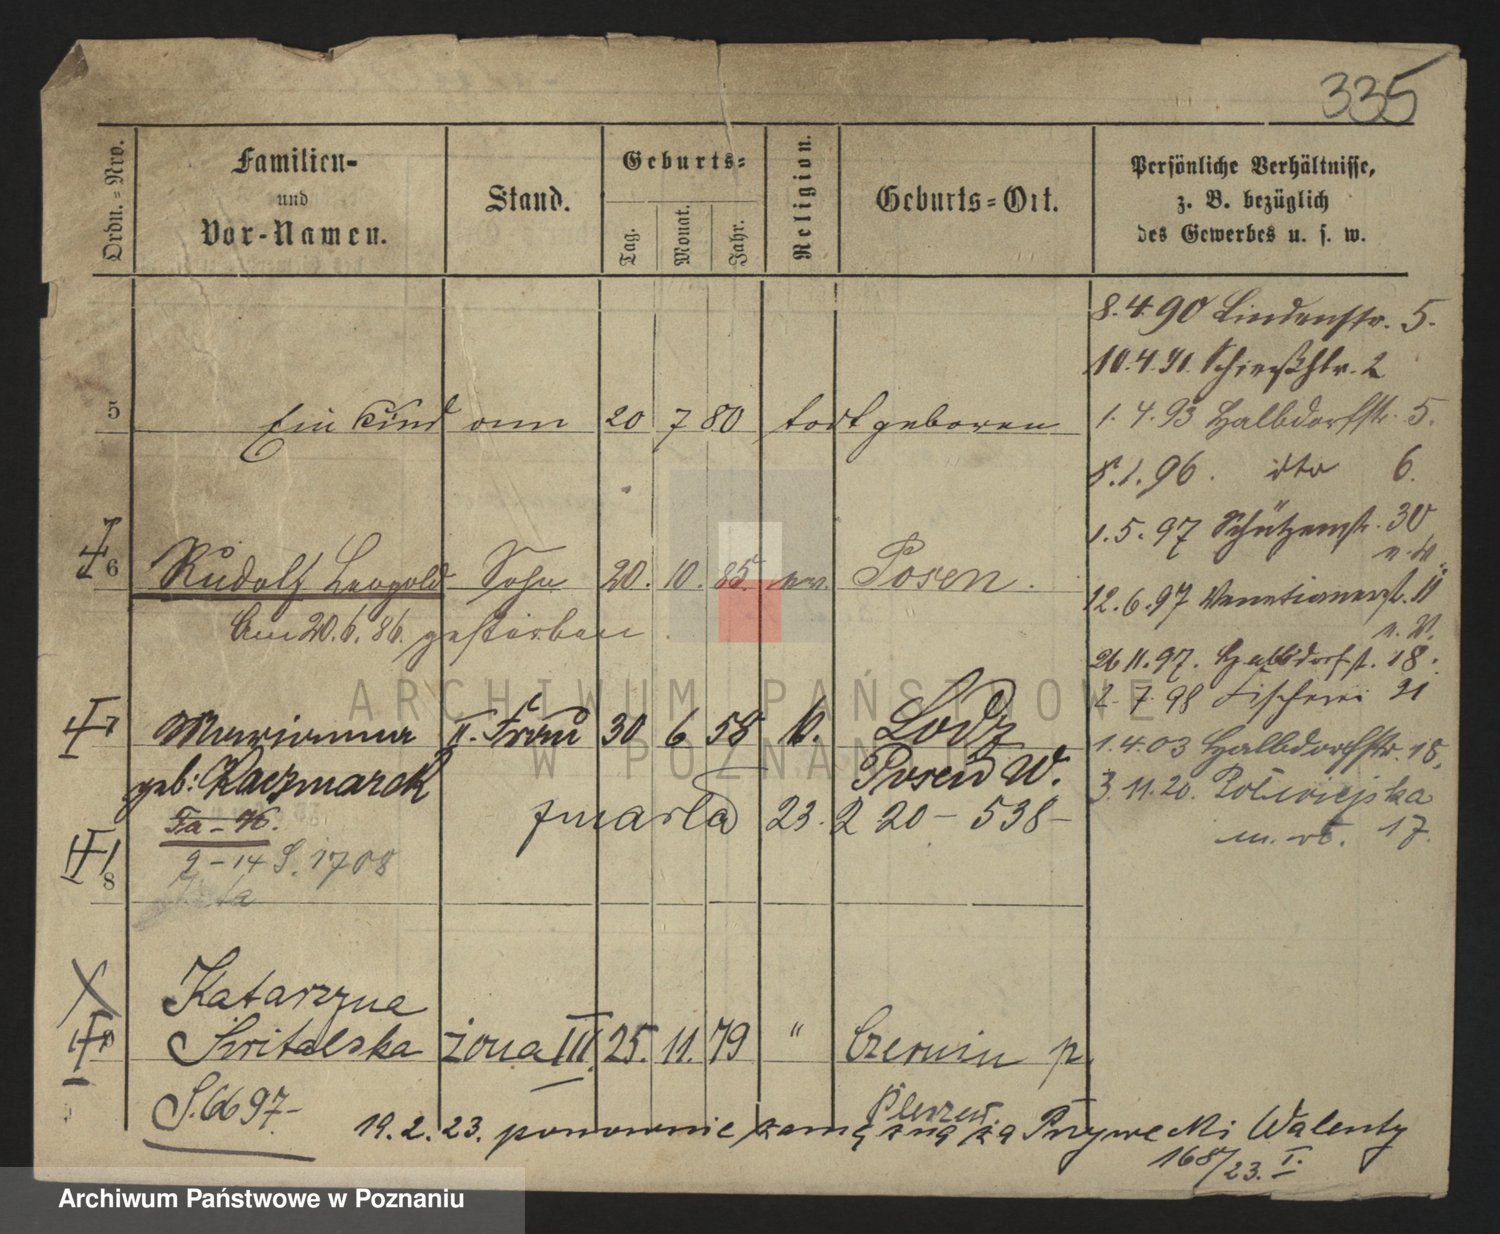 335
Ordn.-Nro.
Familien-
und
Vor-Namen.
Stand.
Geburts-
Tag.
Monat.
Jahr.
Religion.
Geburts-Ort.
Persönliche Verhältnisse,
z. B. bezüglich
des Gewerbes u. s. w.
8.4.90 Lindenstr. 5.
10.4.91. Schießstr. 2
1.4.93 Halbdorfstr. 5.
5 Ein Kind am 20 7 80 todtgeboren
8.1.96. dto 6.
1.5.97 Schützenstr. 30
6 Rudolf Leopold Sohn 20. 10. 85. ev. Posen.
12.6.97 Venetianerstr. 11
Am 20.6.86. gestorben
26 11.97. Halbdorfst. 18.
2.7.98 Fischerei 21
7 Marianna II. Frau 30 6 58 Lodz
1.4.03 Halbdorfstr. 18,
geb: Kaczmarek Posen W.
3.11.20. Półwiejska
zmarła 23. 2 20 - 538 -
17.
2-14 S. 1708
8
Katarzyna
Świtalska żona III. 25. 11. 79 " Czermin p.
Pleszew.
S. 6697.-
19.2.23. ponownie zamężna za Przywecki Walenty
168/23. I.
ARCHIWUM PAŃSTWOWE
W POZNANIU
Archiwum Państwowe w Poznaniu